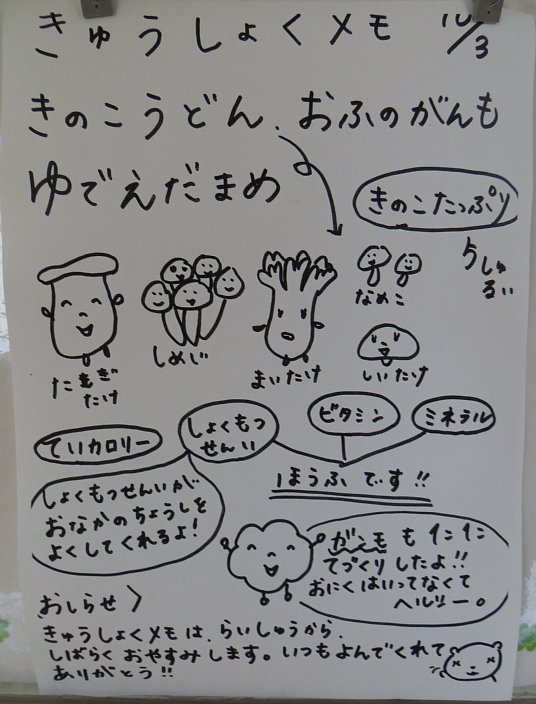 きゅうしょくメモ 10/3
きのこうどん、おふのがんも
ゆでえだまめ
きのこたっぷり
5しゅ
るい
たもぎ
たけ
しめじ
まいたけ
なめこ
しいたけ
ていカロリー
しょくもつ
せんい
ビタミン
ミネラル
ほうふです!!
しょくもつせんいが
おなかのちょうしを
よくしてくれるよ!
ガンモも
てづくりしたよ!!
おにくはいってなくて
ヘルシー。
おしらせ〉
きゅうしょくメモは、らいしゅうから、
しばらくおやすみします。いつもよんでくれて
ありがとう!!